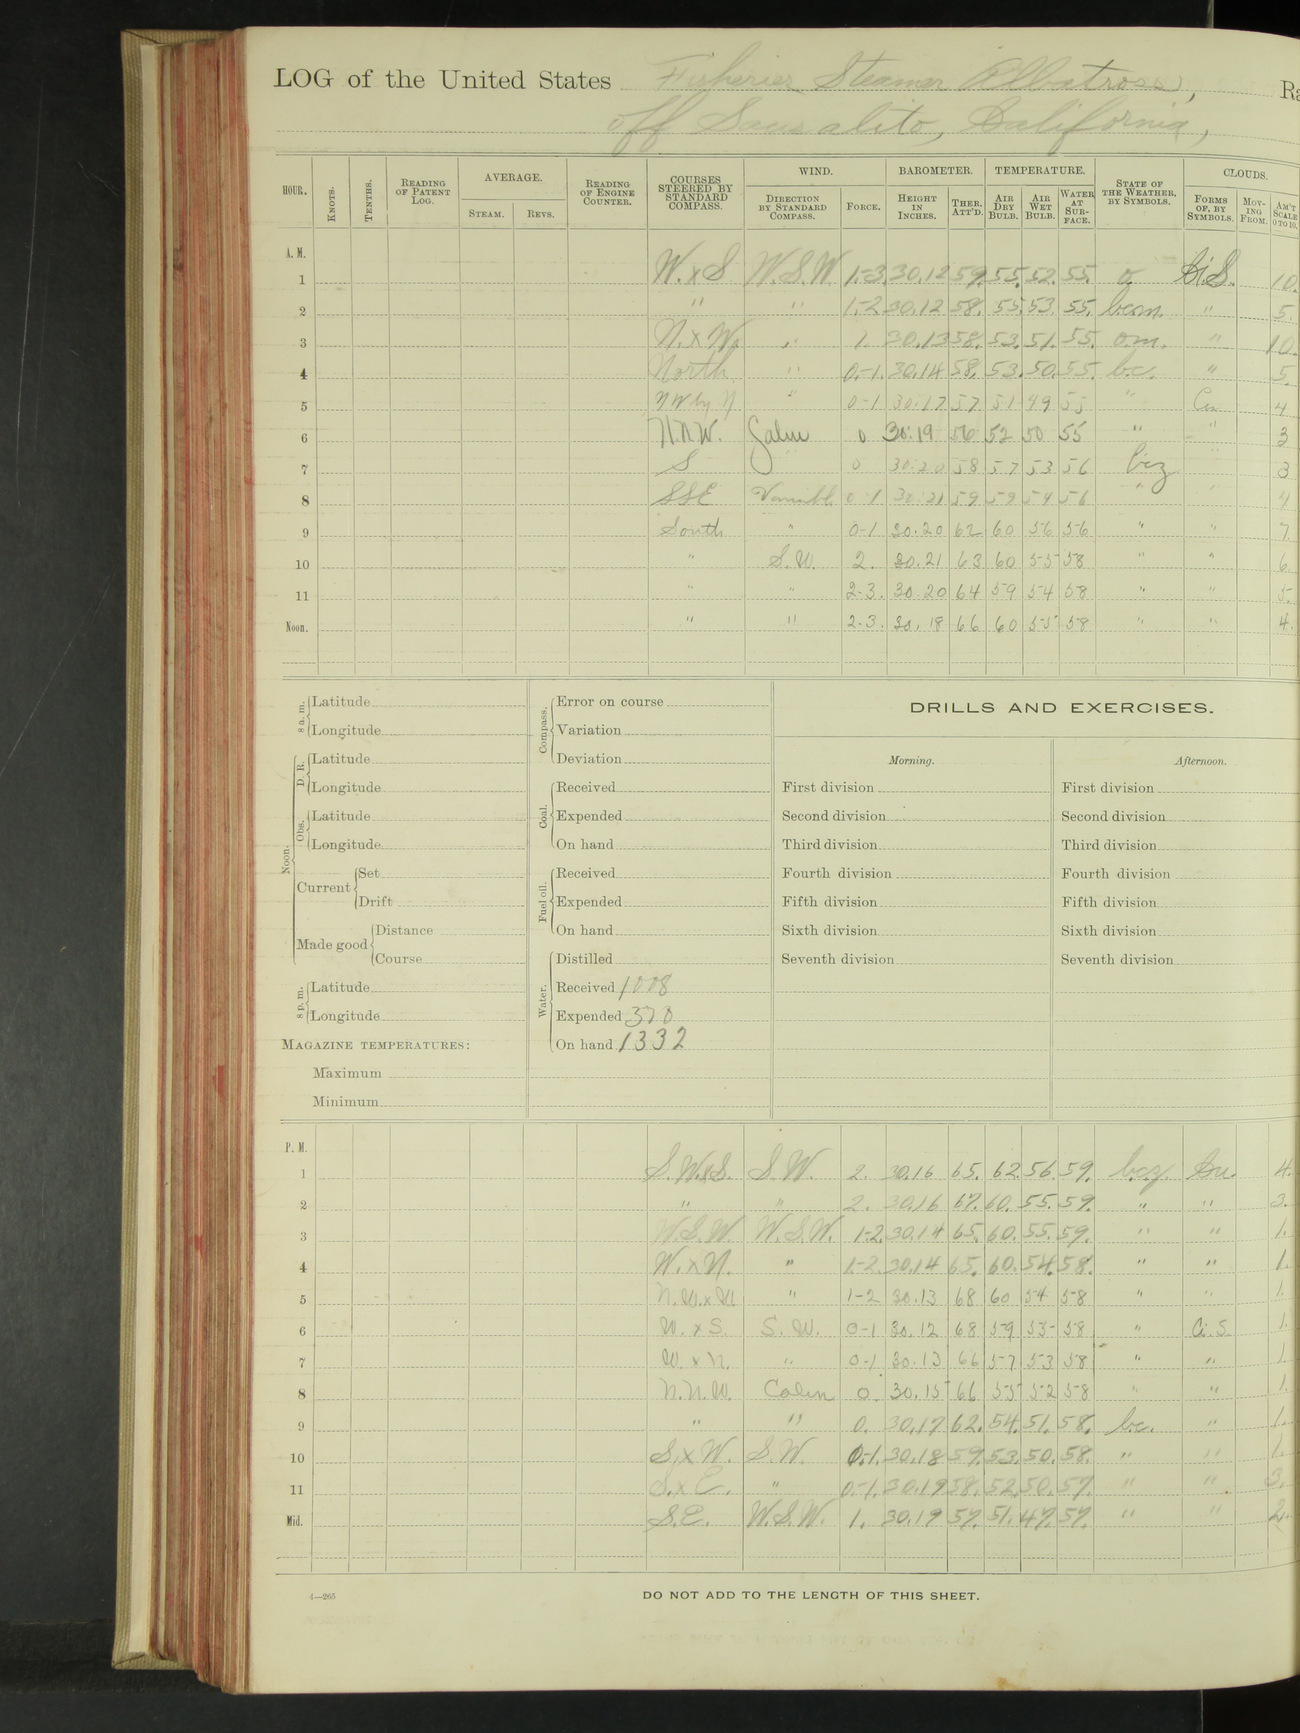 LOG of the United States Fisheries Steamer Albatross, Ra
off Sausalito, California,
HOUR. KNOTS. TENTHS. READING OF PATENT LOG. AVERAGE. STEAM. REVS. READING OF ENGINE COUNTER. COURSES STEERED BY STANDARD COMPASS. WIND. DIRECTION BY STANDARD COMPASS. FORCE. BAROMETER. HEIGHT IN INCHES. THER. ATT'D. TEMPERATURE. AIR DRY BULB. AIR WET BULB. WATER AT SURFACE. STATE OF THE WEATHER, BY SYMBOLS. CLOUDS. FORMS OF, BY SYMBOLS. MOVING FROM. AM'T SCALE 0 TO 10.
A. M.
1 W.xS W.S.W. 1.-3. 30.12 59. 55. 52. 55. o Ci.S. 10.
2 " " 1.-2 30.12 58. 55. 53. 55. bcm. " 5.
3 N.xW. " 1. 30.13 58. 53. 51. 55. o.m. " 10.
4 North " 0.-1. 30.14 58. 53. 50. 55. bc. " 5.
5 NW by N " 0-1 30.17 57 51 49 55 " Cu 4
6 N.N.W. Calm 0 30.19 56 52 50 55 " " 3
7 S " 0 30.20 58 57 53 56 bcz " 3
8 SSE Variable 0-1 30.21 59 59 54 56 " " 4
9 South " 0-1 30.20 62 60 56 56 " " 7.
10 " S.W. 2. 30.21 63 60 55 58 " " 6.
11 " " 2-3. 30.20 64 59 54 58 " " 5.
Noon. " " 2-3. 30.18 66 60 55 58 " " 4.
8 a. m. Latitude
Longitude
Noon. D. R. Latitude
Longitude
Obs. Latitude
Longitude
Current Set
Drift
Made good Distance
Course
8 p. m. Latitude
Longitude
MAGAZINE TEMPERATURES:
Maximum
Minimum
Compass. Error on course
Variation
Deviation
Coal. Received
Expended
On hand
Fuel oil. Received
Expended
On hand
Water. Distilled
Received 1008
Expended
On hand 1332
DRILLS AND EXERCISES.
Morning. Afternoon.
First division First division
Second division Second division
Third division Third division
Fourth division Fourth division
Fifth division Fifth division
Sixth division Sixth division
Seventh division Seventh division
P. M.
1 S.WxS. S.W. 2. 30.16 65. 62. 56. 59. bcz. Cu. 4.
2 " " 2. 30.16 67. 60. 55. 59. " " 3.
3 W.S.W. W.S.W. 1-2. 30.14 65. 60. 55. 59. " " 1.
4 W.xN. " 1.-2. 30.14 65. 60. 54. 58. " " 1.
5 N.W.xW " 1-2 30.13 68 60 54 58 " " 1.
6 W.xS. S.W. 0-1 30.12 68 59 53 58 " Ci.S. 1.
7 W.xN. " 0-1 30.13 66 57 53 58 " " 1.
8 N.N.W. Calm 0. 30.15 66 55 52 58 " " 1.
9 " " 0. 30.17 62. 54. 51. 58. bc. " 1.
10 S.xW. S.W. 0.-1. 30.18 59. 53. 50. 58. " " 1.
11 S.xE. " 0.-1. 30.19 58. 52. 50. 57. " " 3.
Mid. S.E. W.S.W. 1. 30.19 57. 51. 47. 57. " " 2.
4—265
DO NOT ADD TO THE LENGTH OF THIS SHEET.